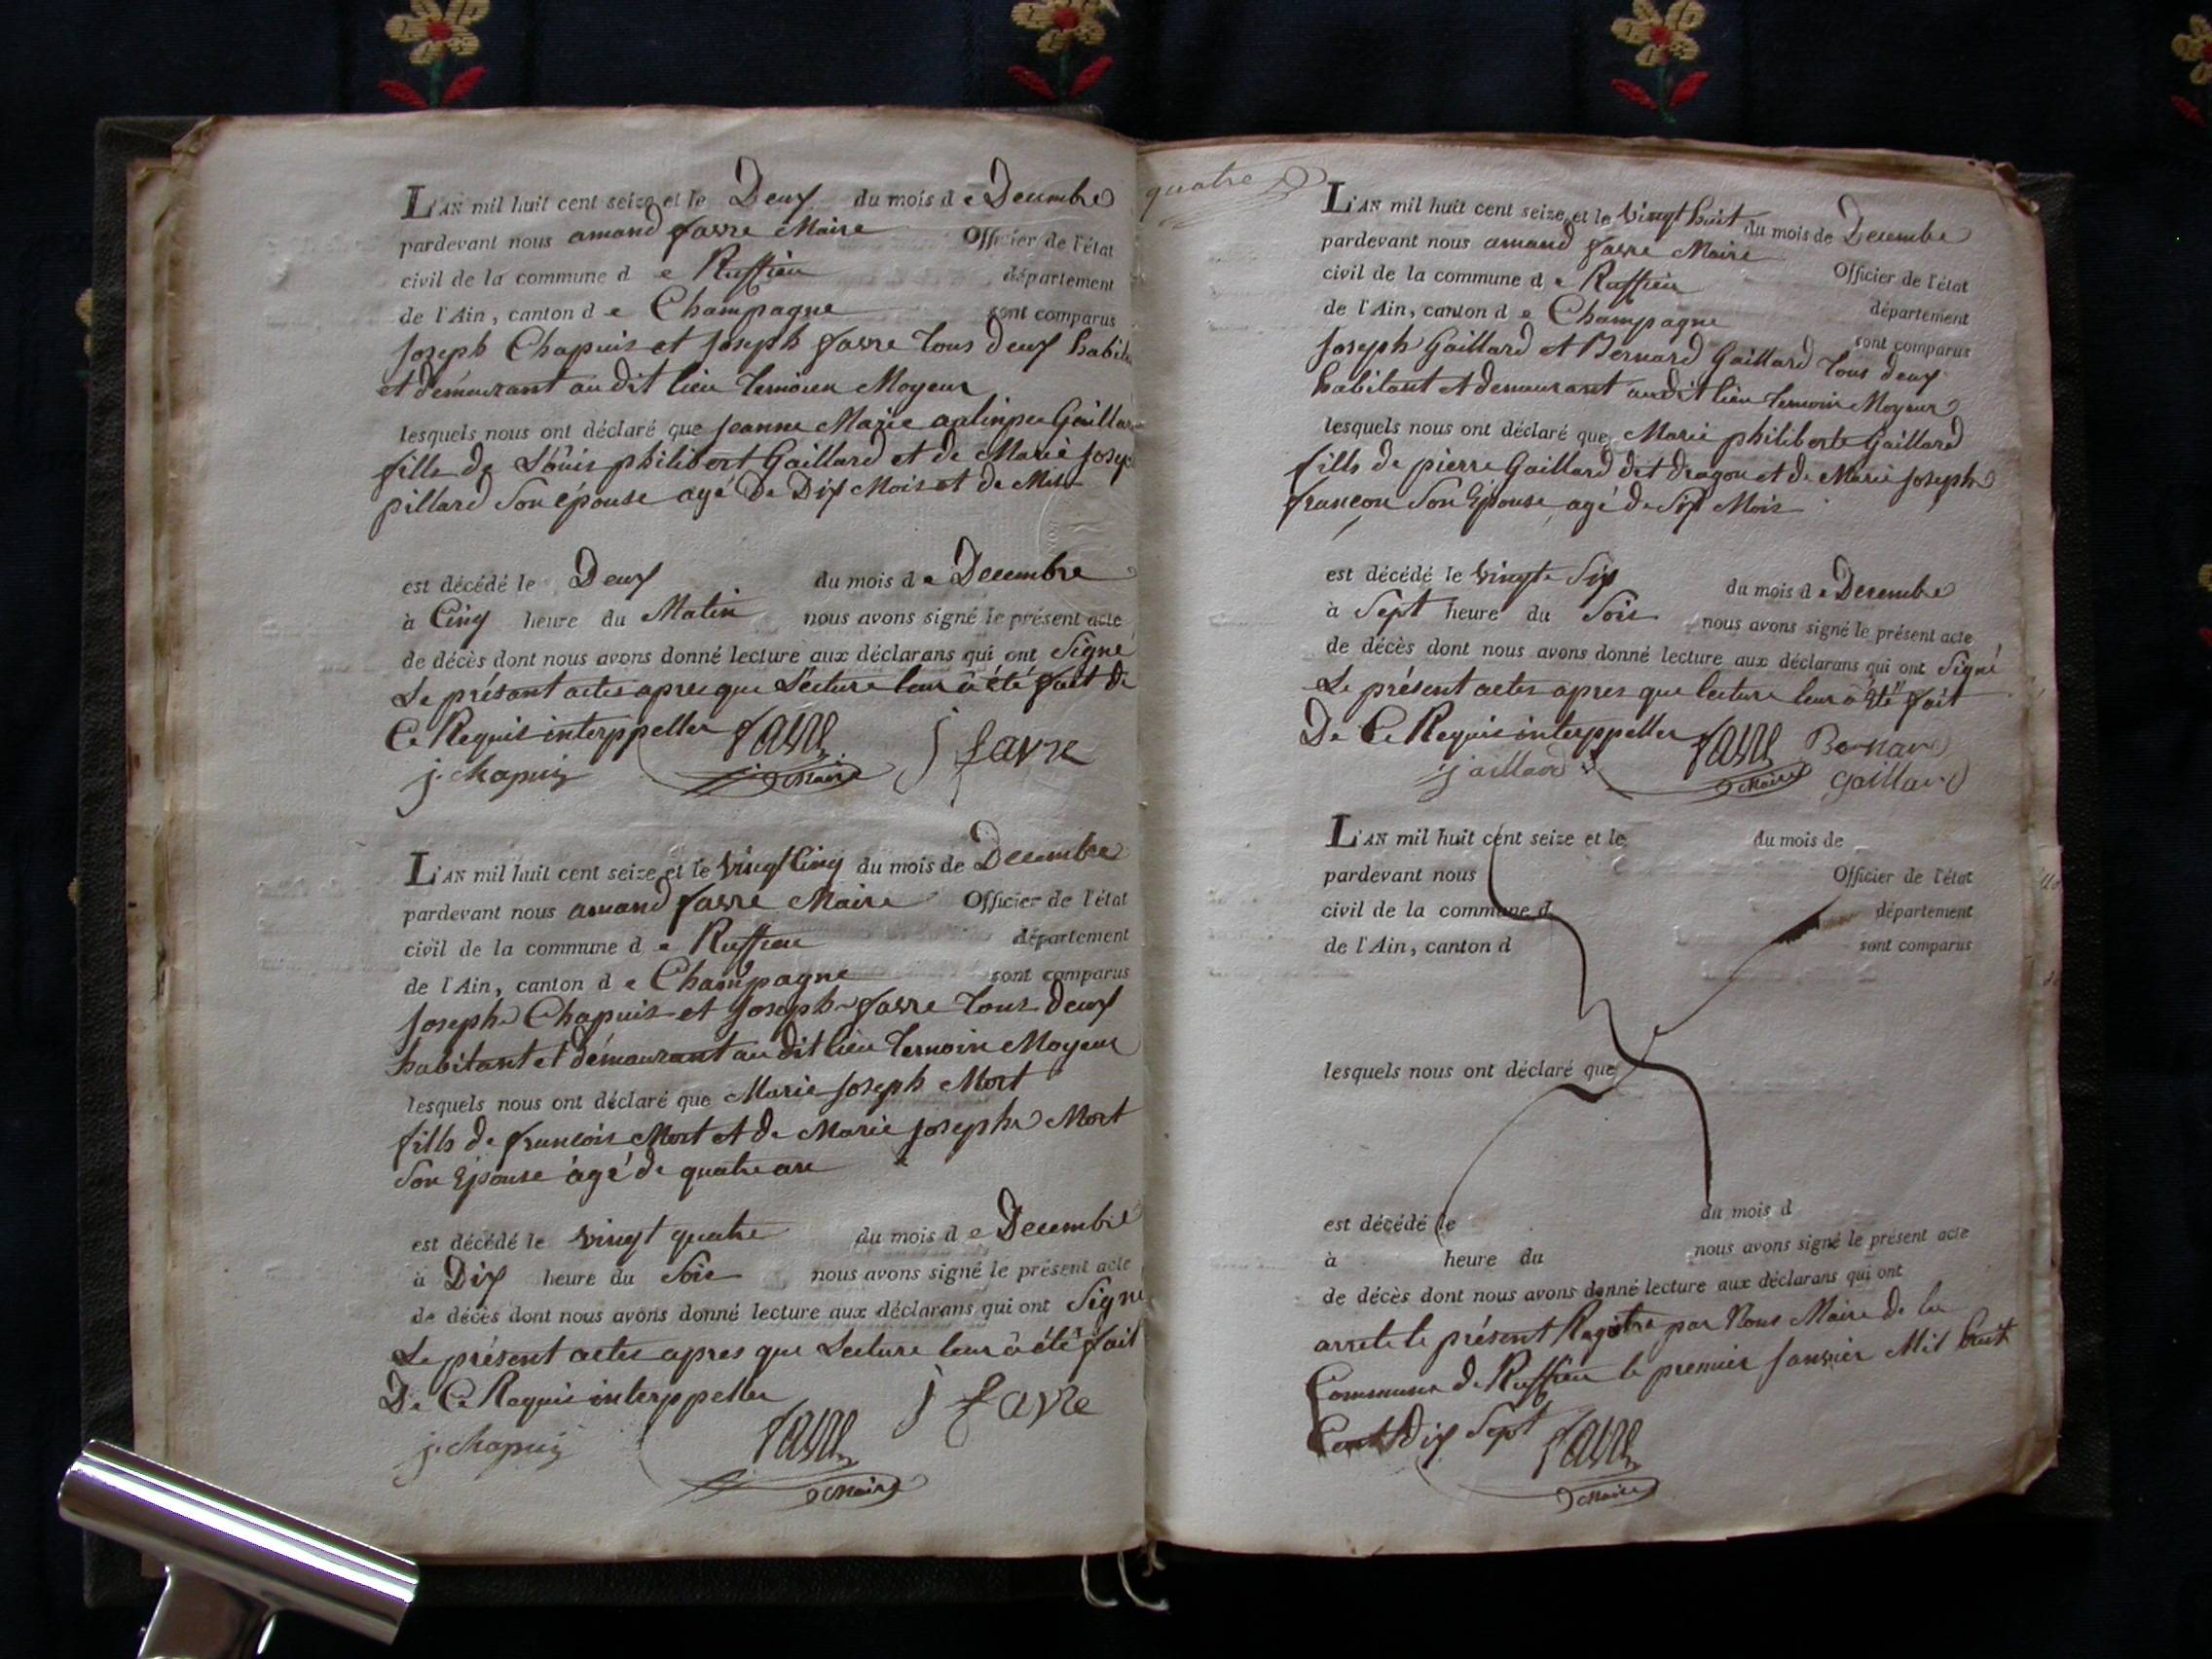 L'AN mil huit cent seize et le Deux du mois de Decembre
pardevant nous amand favre Maire Officier de l'état
civil de la commune de Ruffieu département
de l'Ain, canton de Champagne sont comparus
Joseph Chapuis et Joseph favre Tous deux habit
et demeurant au dit lieu Temoien Moyeur
lesquels nous ont déclaré que Jeanne Marie Gaillar
fille de Louis philibert Gaillard et de Marie Josep
pillard Son épouse agé De Dix Mois et de Mis
est décédé le Deux du mois de Decembre
à Cinq heure du Matin nous avons signé le présent acte
de décès dont nous avons donné lecture aux déclarans qui ont Signé
Le présant actes apres que Lecture leur à été fait de
Ce Requis interppeller favre J favre
j. chapuis Maire
L'AN mil huit cent seize et le vingt Cinq du mois de Decembre
pardevant nous amand favre Maire Officier de l'état
civil de la commune de Ruffieu département
de l'Ain, canton de Champagne sont comparus
Joseph Chapuis et Joseph favre Tous deux
habitant et démeurant au dit lieu Temoin Moyeur
lesquels nous ont déclaré que Marie Joseph Mort
fille de francois Mort et de Marie Josephe Mort
Son Epouse âgé de quatre an
est décédé le vingt quatre du mois de Decembre
à Dix heure du Soir nous avons signé le présent acte
de décès dont nous avons donné lecture aux déclarans qui ont Signé
Le présent actes apres que Lecture leur à été fait
De Ce Requis interppeller J favre
j. chapuis favre
Maire
quatre
L'AN mil huit cent seize et le vingt huit du mois de Decembre
pardevant nous amand favre Maire Officier de l'état
civil de la commune de Ruffieu département
de l'Ain, canton de Champagne sont comparus
Joseph Gaillard et Bernard Gaillard Tous deux
habitant et demeurant audit lieu temoin Moyeur
lesquels nous ont déclaré que Marie philiberte Gaillard
fille de pierre Gaillard dit dragon et de Marie Joseph
francon Son Epouse agé de Six Mois
est décédé le vingt Six du mois de Decembre
à Sept heure du Soir nous avons signé le présent acte
de décès dont nous avons donné lecture aux déclarans qui ont Signé
Le présent actes apres que lecture leur a été fait
De Ce Requis interppeller favre Bernard
j aillard Maire Gaillard
L'AN mil huit cent seize et le du mois de
pardevant nous Officier de l'état
civil de la commune d département
de l'Ain, canton d sont comparus
lesquels nous ont déclaré que
est décédé le du mois d
à heure du nous avons signé le présent acte
de décès dont nous avons donné lecture aux déclarans qui ont
arrete le présent Registre par Nous Maire de la
Commune de Ruffieu le premier Janvier Mil huit
Cent dix Sept favre
Maire